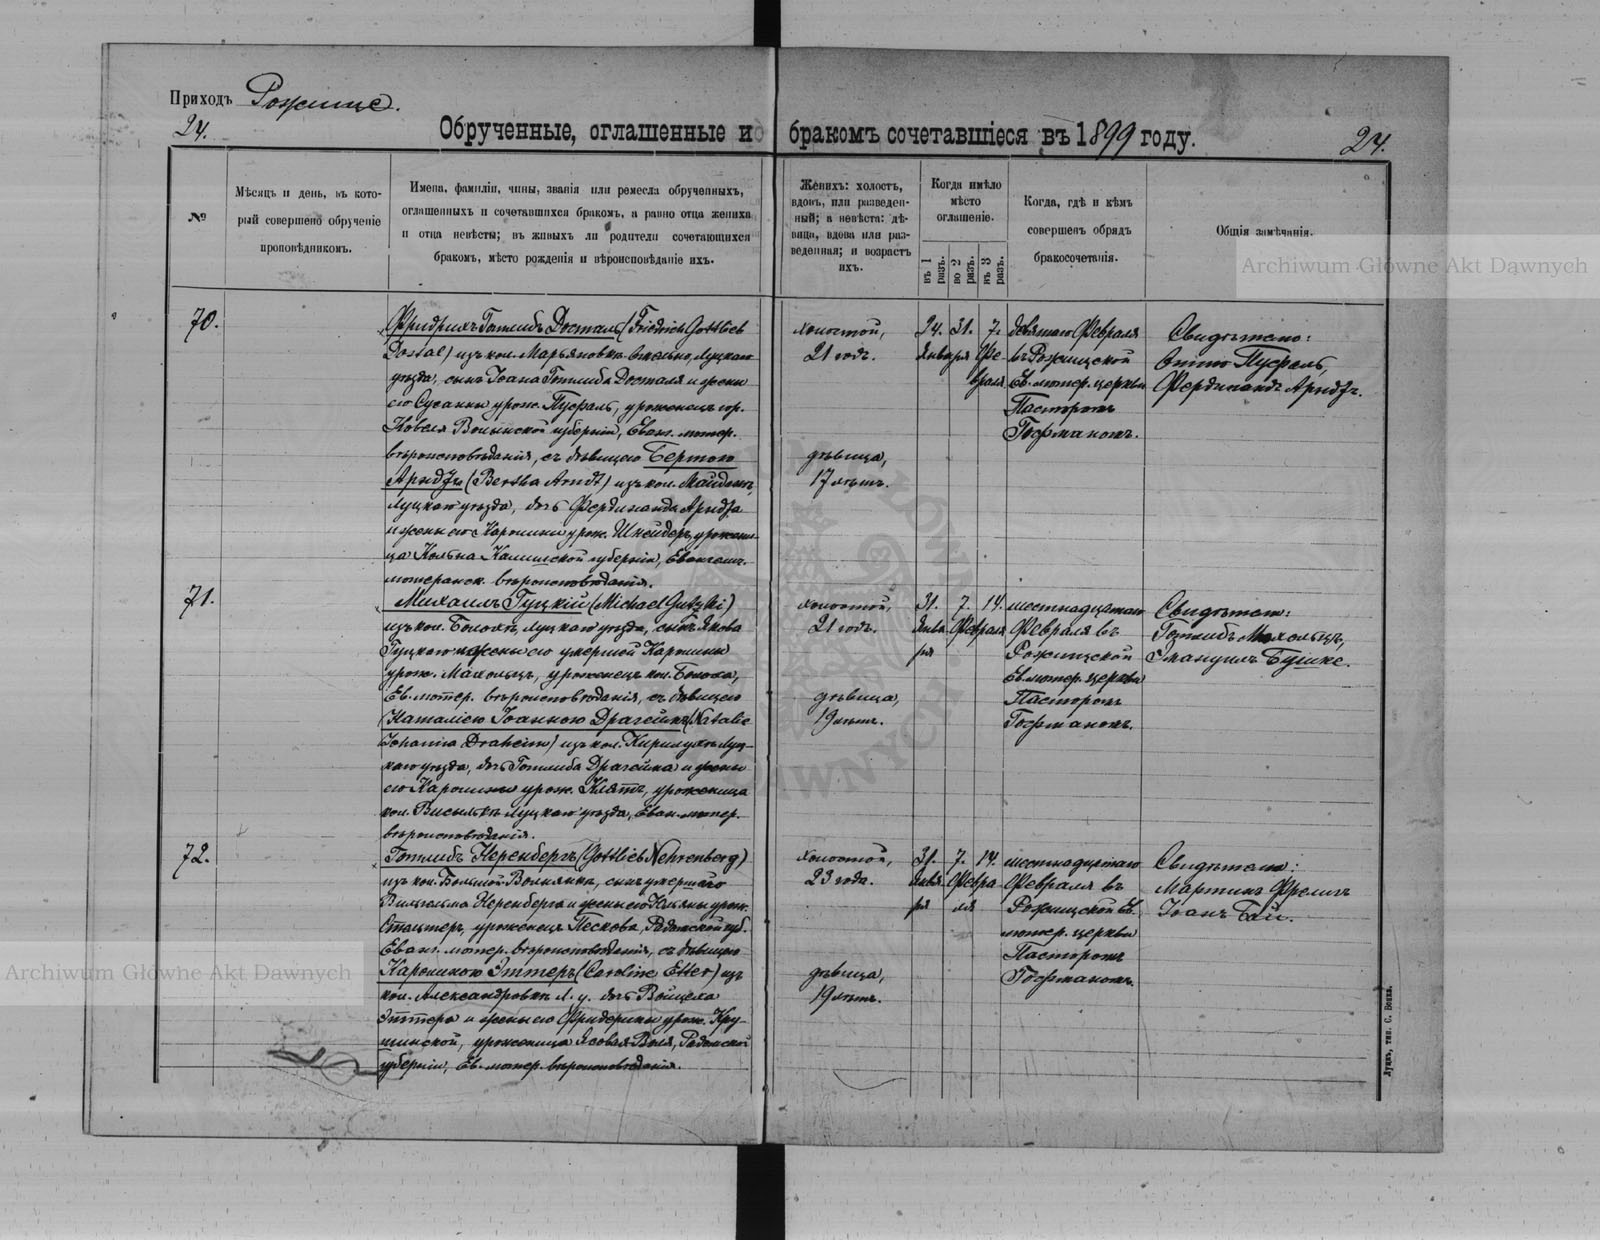 Приходъ Рожище.
24.
Обрученные, оглашенные и бракомъ сочетавшіеся въ 1899 году.
24.
№
Мѣсяцъ и день, въ кото-
рый совершено обрученіе
проповѣдникомъ.
Имена, фамиліи, чины, званія или ремесла обрученныхъ,
оглашенныхъ и сочетавшихся бракомъ, а равно отца жениха
и отца невѣсты; въ живыхъ ли родители сочетающихся
бракомъ, мѣсто рожденія и вѣроисповѣданіе ихъ.
Женихъ: холостъ,
вдовъ, или разведен-
ный; а невѣста: дѣ-
вица, вдова или раз-
веденная; и возрастъ
ихъ.
Когда имѣло
мѣсто
оглашеніе.
въ 1 разъ.
во 2 разъ.
въ 3 разъ.
Когда, гдѣ и кѣмъ
совершенъ обрядъ
бракосочетанія.
Общія замѣчанія.
70.
Фридрихъ Готлибъ Досталь (Friedrich Gottlieb
Dostal) изъ кол. Марьяновка Луцкаго
уѣзда, сынъ Іоана Готлиба Досталя и жены
его Сусанны урож. Пуфаль, уроженецъ гор.
Ковеля Волынской губерніи, Еван. лютер.
вѣроисповѣданія, съ дѣвицею Бертою
Арндтъ (Bertha Arndt) изъ кол. Майданъ,
Луцкаго уѣзда, дочь Фердинанда Арндта
и жены его Каролины урож. Шнейдеръ, урожени-
ца Калишской губерніи, Евангели.
лютеранск. вѣроисповѣданія.
холостой,
21 годъ.
дѣвица,
17 лѣтъ.
24. 31. 7.
Января Фе-
враля
девятаго Февраля
въ Рожищской
Ев. лютер. церкви
Пасторомъ
Гофманомъ.
Свидѣтели:
Отто Пуфаль,
Фердинандъ Арндтъ.
71.
Михаилъ Гуцкій (Michael Gutzki)
изъ кол. Луцкаго уѣзда, сынъ Якова
Гуцкаго и жены его умершей Каролины
урож. уроженецъ кол.
Ев. лютер. вѣроисповѣданія, съ дѣвицею
Наталіею Іоанною Драгеймъ (Natalie
Johanna Draheim) изъ кол. Луц-
каго уѣзда, дочь Готлиба Драгейма и жены
его Каролины урож. Клаттъ, уроженица
кол. Луцкаго уѣзда, Еван. лютер.
вѣроисповѣданія.
холостой,
21 годъ.
дѣвица,
19 лѣтъ.
31. 7. 14.
Янва- Февраля
ря
шестнадцатаго
Февраля въ
Рожищской
Ев. лютер. церкви
Пасторомъ
Гофманомъ.
Свидѣтели:
Готлибъ
72.
Готлибъ Неренбергъ (Gottlieb Nehrenberg)
изъ кол. Большой Волнянки, сынъ умершаго
Вильгельма Неренберга и жены его урож.
уроженецъ Пескова, Радомской губ.
Еван. лютер. вѣроисповѣданія, съ дѣвицею
Каролиною Эттеръ (Caroline Etter) изъ
кол. Александровка Л. у. дочь Войцеха
Эттера и жены его Фридерики урож. Кру-
шинской, уроженица Воля, Радомской
губерніи, Ев. лютер. вѣроисповѣданія.
холостой,
23 года.
дѣвица,
19 лѣтъ.
31. 7. 14.
Янва Февра
ря ля
шестнадцатаго
Февраля въ
Рожищской Ев.
лютер. церкви
Пасторомъ
Гофманомъ.
Свидѣтели:
Мартинъ
Іоанъ Гай.
Луцкъ, тип. С. Бонка.
Archiwum Główne Akt Dawnych
Archiwum Główne Akt Dawnych